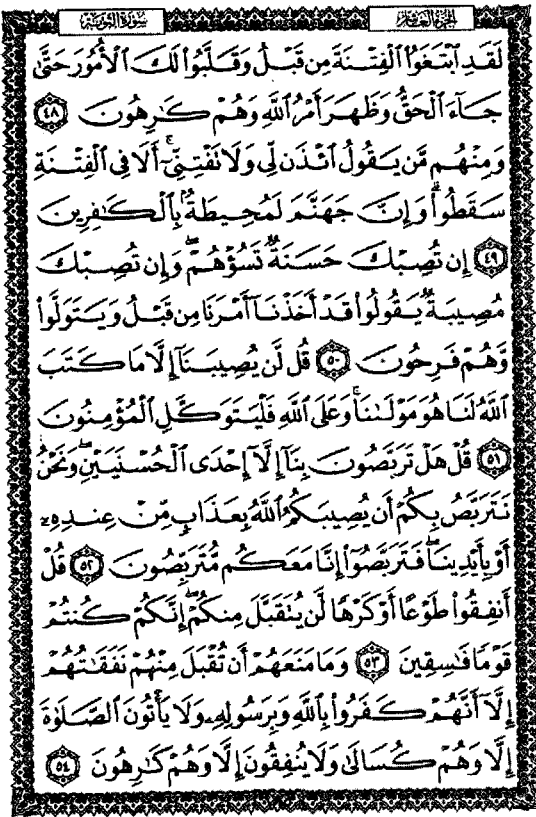 الجزء العاشر
سورة التوبة
لَقَدِ ٱبْتَغَوُا۟ ٱلْفِتْنَةَ مِن قَبْلُ وَقَلَّبُوا۟ لَكَ ٱلْأُمُورَ حَتَّىٰ
جَآءَ ٱلْحَقُّ وَظَهَرَ أَمْرُ ٱللَّهِ وَهُمْ كَـٰرِهُونَ ٤٨
وَمِنْهُم مَّن يَقُولُ ٱئْذَن لِّى وَلَا تَفْتِنِّىٓ ۚ أَلَا فِى ٱلْفِتْنَةِ
سَقَطُوا۟ ۗ وَإِنَّ جَهَنَّمَ لَمُحِيطَةٌۢ بِٱلْكَـٰفِرِينَ
٤٩ إِن تُصِبْكَ حَسَنَةٌ تَسُؤْهُمْ ۖ وَإِن تُصِبْكَ
مُصِيبَةٌ يَقُولُوا۟ قَدْ أَخَذْنَآ أَمْرَنَا مِن قَبْلُ وَيَتَوَلَّوا۟
وَّهُمْ فَرِحُونَ ٥٠ قُل لَّن يُصِيبَنَآ إِلَّا مَا كَتَبَ
ٱللَّهُ لَنَا هُوَ مَوْلَىٰنَا ۚ وَعَلَى ٱللَّهِ فَلْيَتَوَكَّلِ ٱلْمُؤْمِنُونَ
٥١ قُلْ هَلْ تَرَبَّصُونَ بِنَآ إِلَّآ إِحْدَى ٱلْحُسْنَيَيْنِ ۖ وَنَحْنُ
نَتَرَبَّصُ بِكُمْ أَن يُصِيبَكُمُ ٱللَّهُ بِعَذَابٍ مِّنْ عِندِهِۦٓ
أَوْ بِأَيْدِينَا ۖ فَتَرَبَّصُوٓا۟ إِنَّا مَعَكُم مُّتَرَبِّصُونَ ٥٢ قُلْ
أَنفِقُوا۟ طَوْعًا أَوْ كَرْهًا لَّن يُتَقَبَّلَ مِنكُمْ ۖ إِنَّكُمْ كُنتُمْ
قَوْمًا فَـٰسِقِينَ ٥٣ وَمَا مَنَعَهُمْ أَن تُقْبَلَ مِنْهُمْ نَفَقَـٰتُهُمْ
إِلَّآ أَنَّهُمْ كَفَرُوا۟ بِٱللَّهِ وَبِرَسُولِهِۦ وَلَا يَأْتُونَ ٱلصَّلَوٰةَ
إِلَّا وَهُمْ كُسَالَىٰ وَلَا يُنفِقُونَ إِلَّا وَهُمْ كَـٰرِهُونَ ٥٤